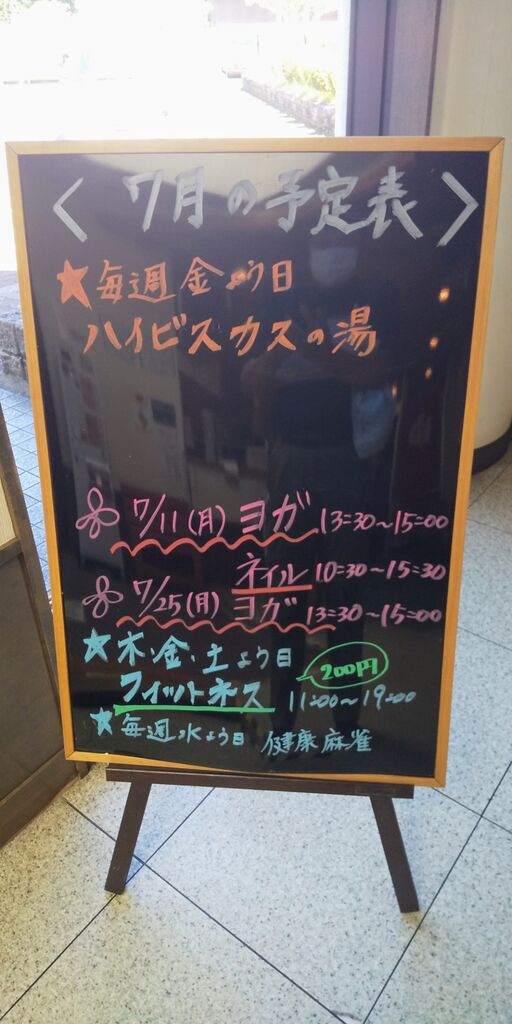 <7月の予定表>
★毎週金よう日
ハイビスカスの湯
7/11(月)ヨガ 13:30~15:00
ネイル 10:30~15:30
7/25(月)ヨガ 13:30~15:00
★木・金・土よう日
200円
フィットネス 11:00~19:00
★毎週水よう日 健康麻雀